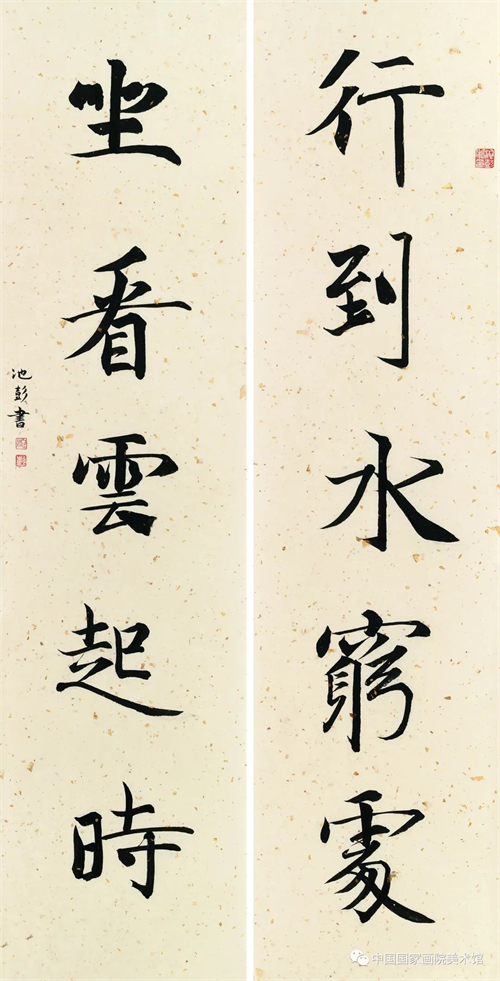 行到水窮處
坐看雲起時
池彭書
中国国家画院美术馆